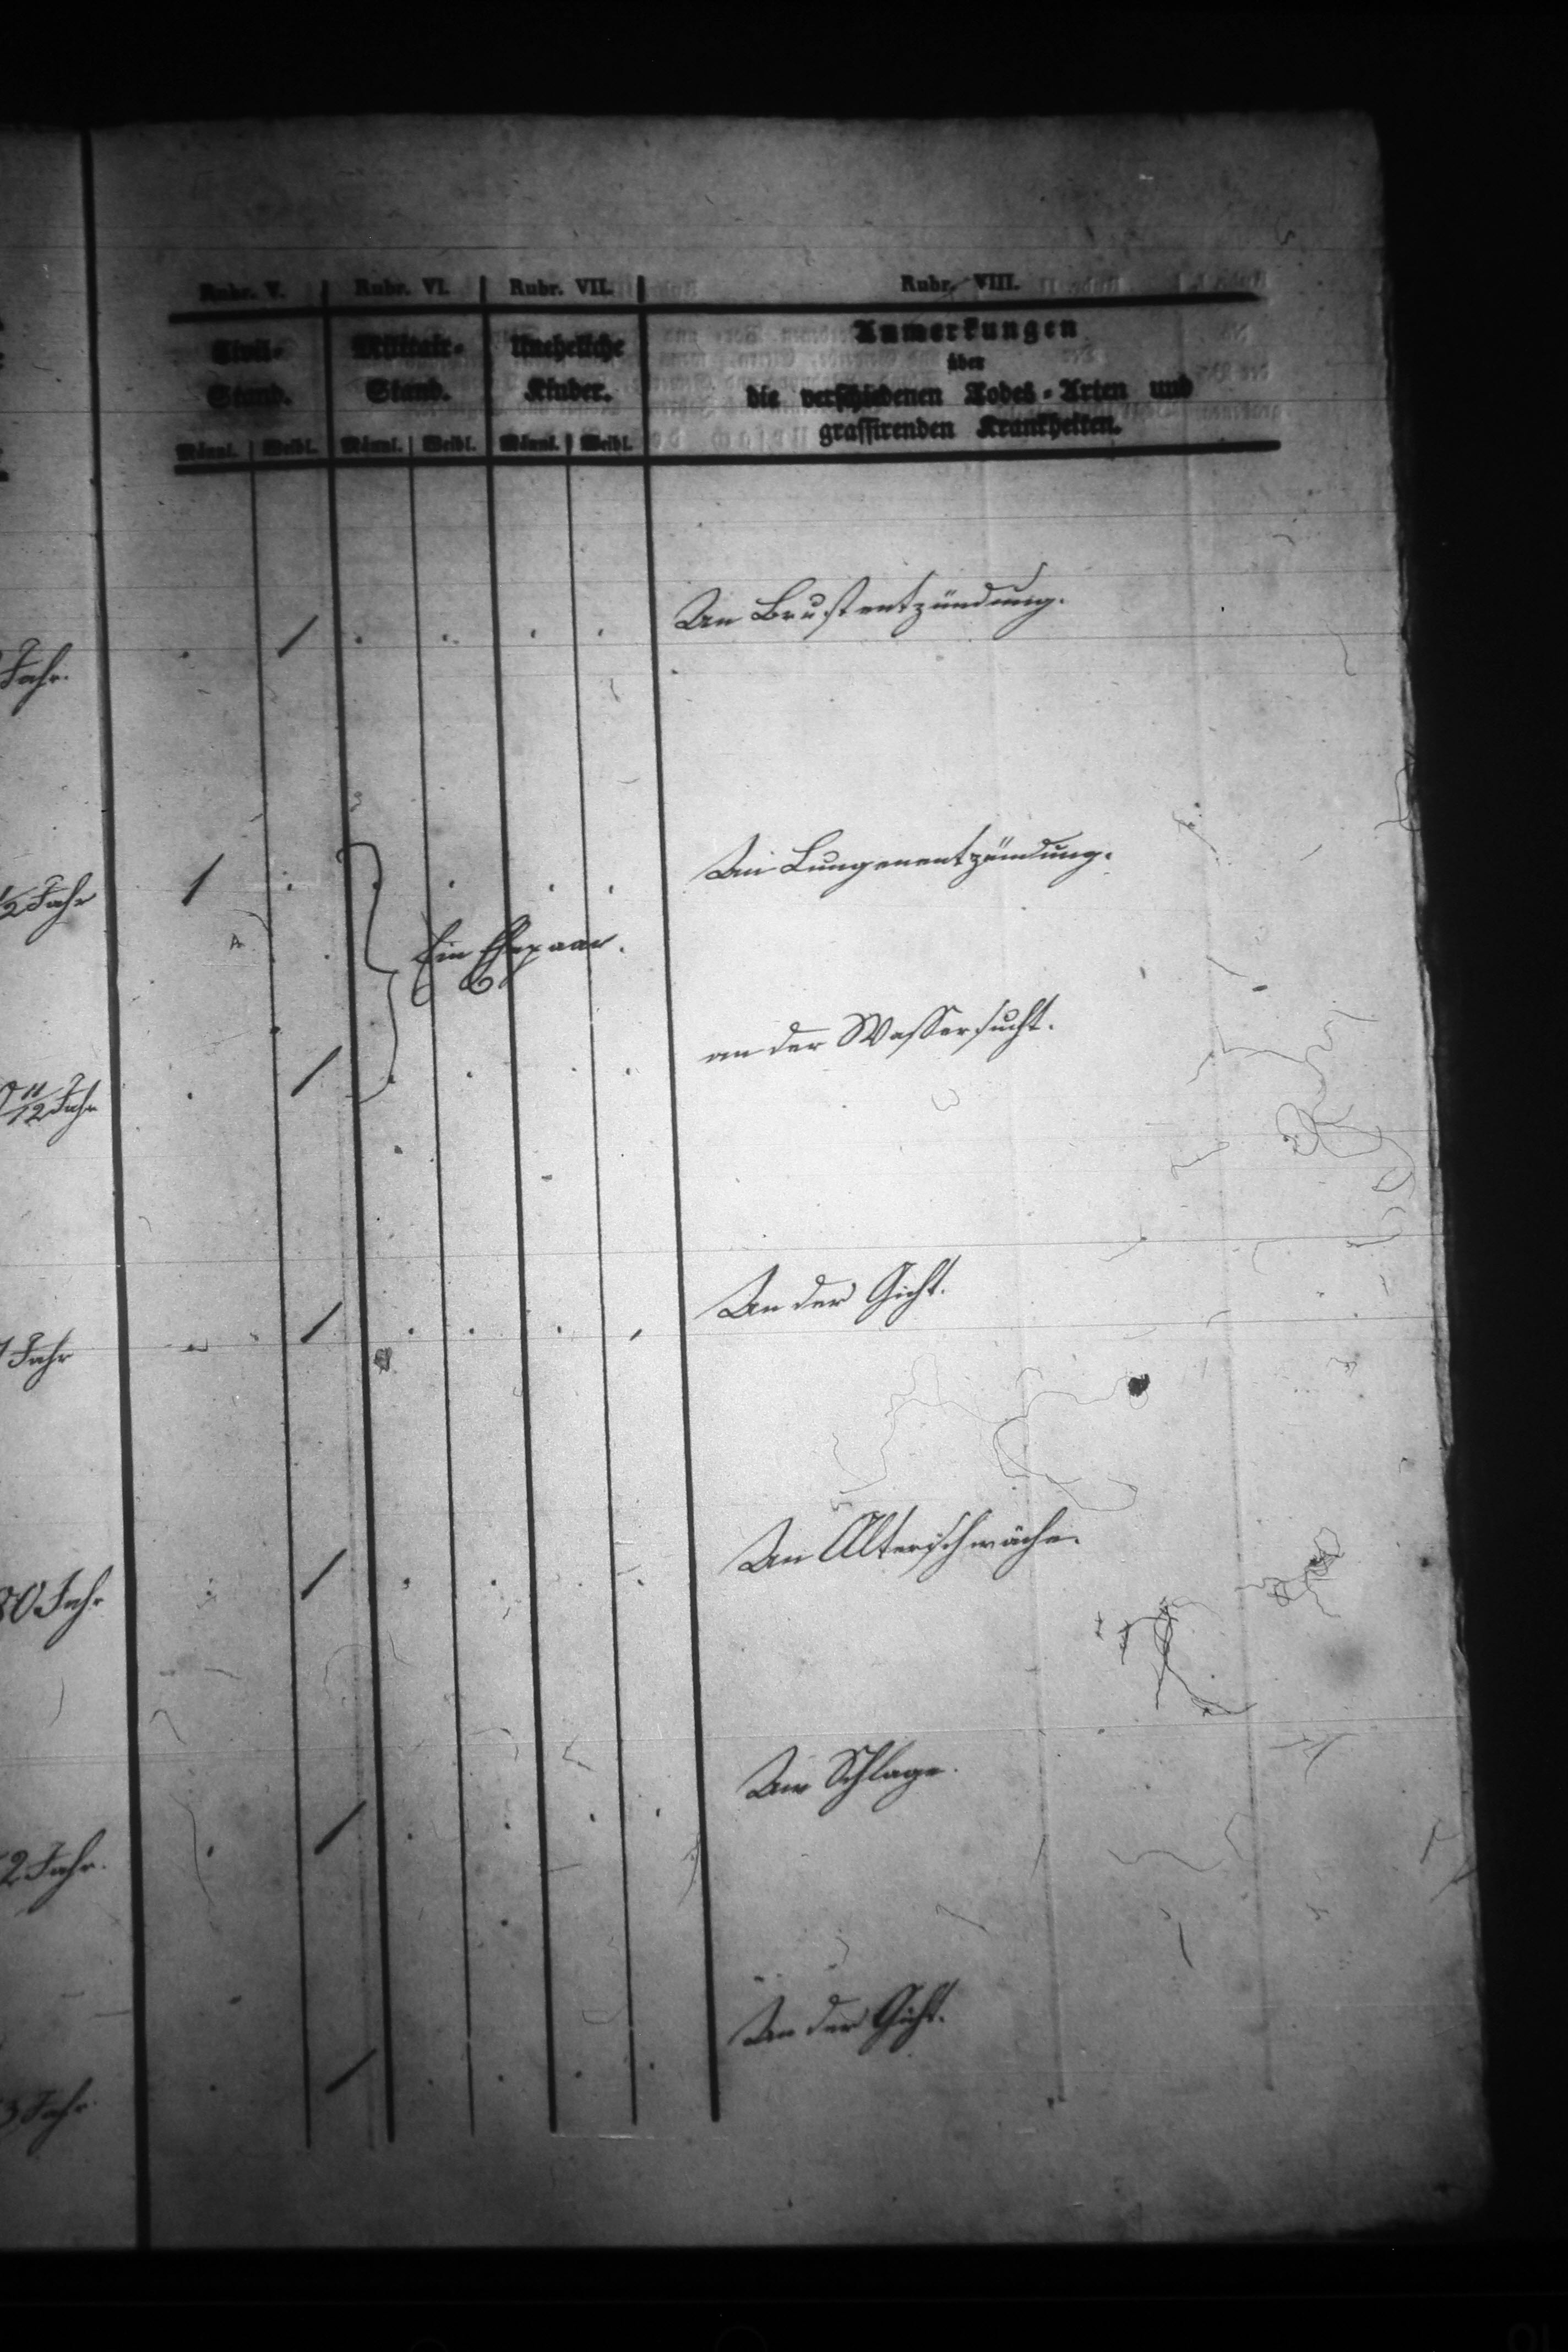 Rubr. V. Rubr. VI. Rubr. VII. Rubr. VIII.
Civil- Militair- Uneheliche Anmerkungen
über
Stand. Stand. Kinder. die verschiedenen Todes-Arten und
grassirenden Krankheiten.
Männl. Weibl. Männl. Weibl. Männl. Weibl.
An Brustentzündung.
Jahr.
An Lungenentzündung.
1/2 Jahr
Ein Ehepaar.
an der Wassersucht.
11/12 Jahr
An der Gicht.
Jahr
An Altersschwäche.
80 Jahr
Am Schlage.
2 Jahr.
An der Gicht.
3 Jahr